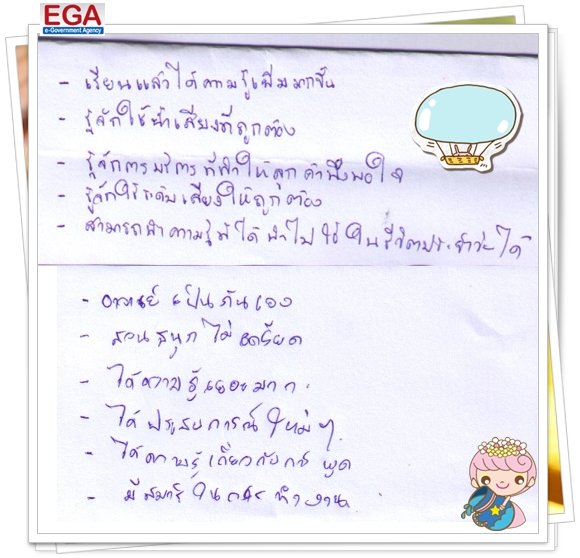 EGA
e-Government Agency
- เรียนแล้วได้ความรู้เพิ่มมากขึ้น
- รู้จักใช้น้ำเสียงที่ถูกต้อง
- รู้จักการบริการที่ทำให้ลูกค้าพึงพอใจ
- รู้จักใช้ระดับเสียงให้ถูกต้อง
- สามารถนำความรู้ที่ได้นำไปใช้ในชีวิตประจำวันได้
- อาจารย์ เป็นกันเอง
- สอนสนุก ไม่เครียด
- ได้ความรู้เยอะมาก
- ได้ประสบการณ์ใหม่ๆ
- ได้ความรู้เกี่ยวกับการพูด
- มีสมาธิในการทำงาน